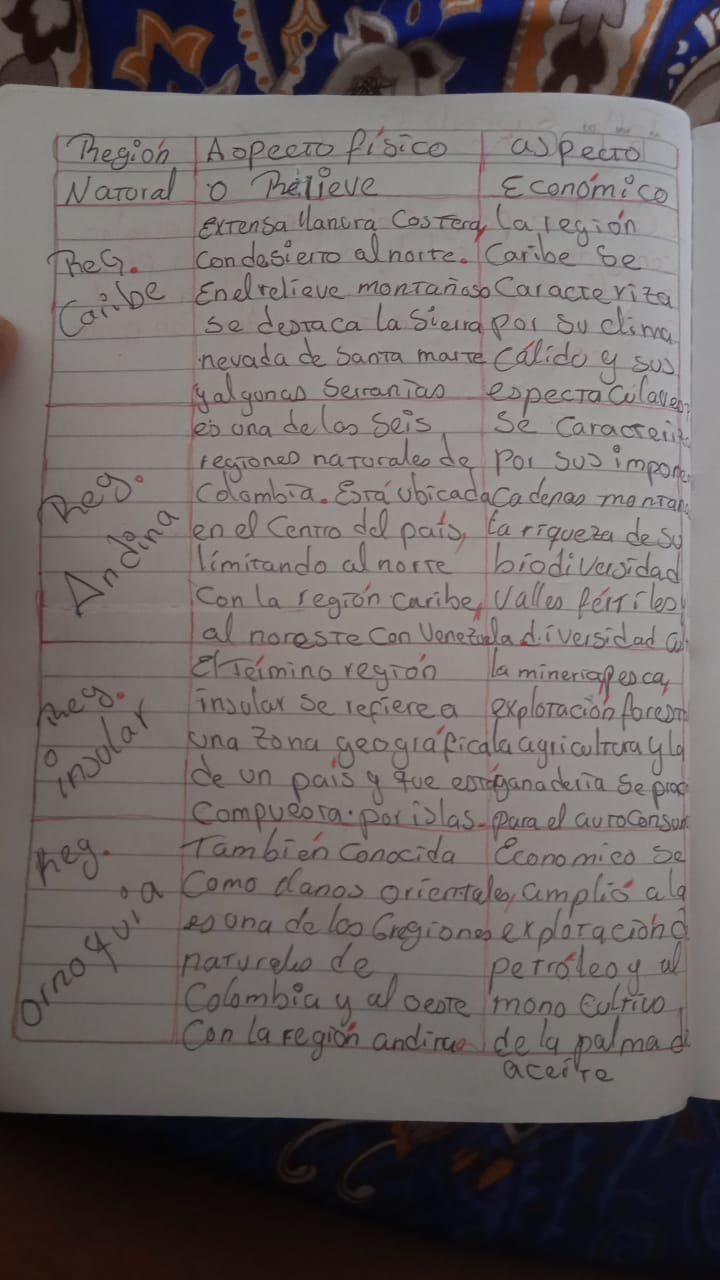 Región Aspecto físico aspecto
Natural o Relieve Económico
Extensa llanura costera, la región
Reg. Con desierto al norte. Caribe se
Caribe En el relieve montañoso Caracteriza
se destaca la Sierra por su clima
nevada de Santa marta cálido y sus
y algunas Serranías espectaculares
es una de las Seis Se Caracteriz
Reg. regiones naturales de por sus impone
Andina Colombia. Está ubicada Cadenas montañ
en el Centro del país, la riqueza de su
limitando al norte biodiversidad
Con la región caribe, Valles fértiles
al noreste con Venezuela diversidad
El Término región la mineria pesca,
Reg. insular se refiere a exploración forest
o insular una zona geográfica la agricultura y la
de un país y que está ganadería se prac
Compuesta por islas. para el autoconsum
Reg. También Conocida Económico se
Ornoquia Como llanos orientales, amplió a la
es una de las 6 regiones exploración d
naturales de petróleo y al
Colombia y al oeste mono cultivo
Con la región andina de la palma d
aceite